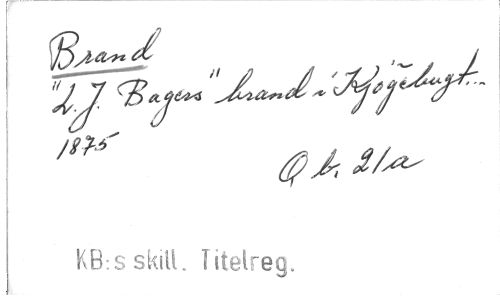 Brand
"L. J. Bagers" brand i Kjögebugt...
1875
Q b. 21a
KB:s skill. Titelreg.